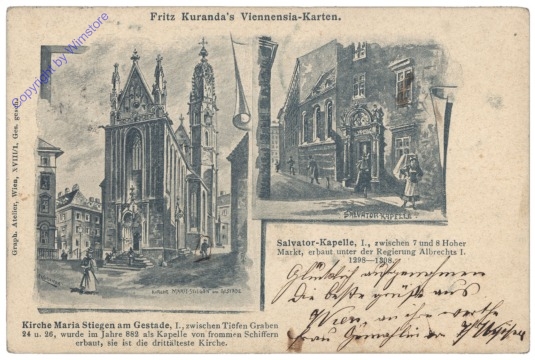 Fritz Kuranda's Viennensia-Karten.
Copyright by Winstore
Graph. Atelier, Wien, XVIII/1. Ges. gesch.
KIRCHE MARIA STIEGEN am GESTADE
SALVATOR KAPELLE
Salvator-Kapelle, I., zwischen 7 und 8 Hoher
Markt, erbaut unter der Regierung Albrechts I.
1298—1308.
Glücklich angekommen
die beste Grüße aus
Wien, auch werthe
Frau Gemahlin
Kirche Maria Stiegen am Gestade, I., zwischen Tiefen Graben
24 u. 26, wurde im Jahre 882 als Kapelle von frommen Schiffern
erbaut, sie ist die drittälteste Kirche.